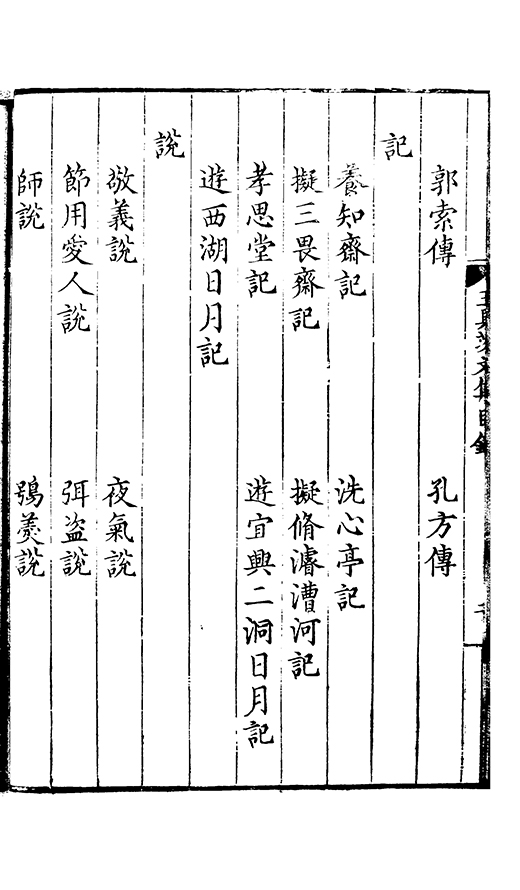 郭索傳　孔方傳
記
養知齋記　洗心亭記
擬三畏齋記　擬脩濬漕河記
孝思堂記　遊宜興二洞日月記
遊西湖日月記
說
敬義說　夜氣說
節用愛人說　弭盗說
師說　鴞羹說